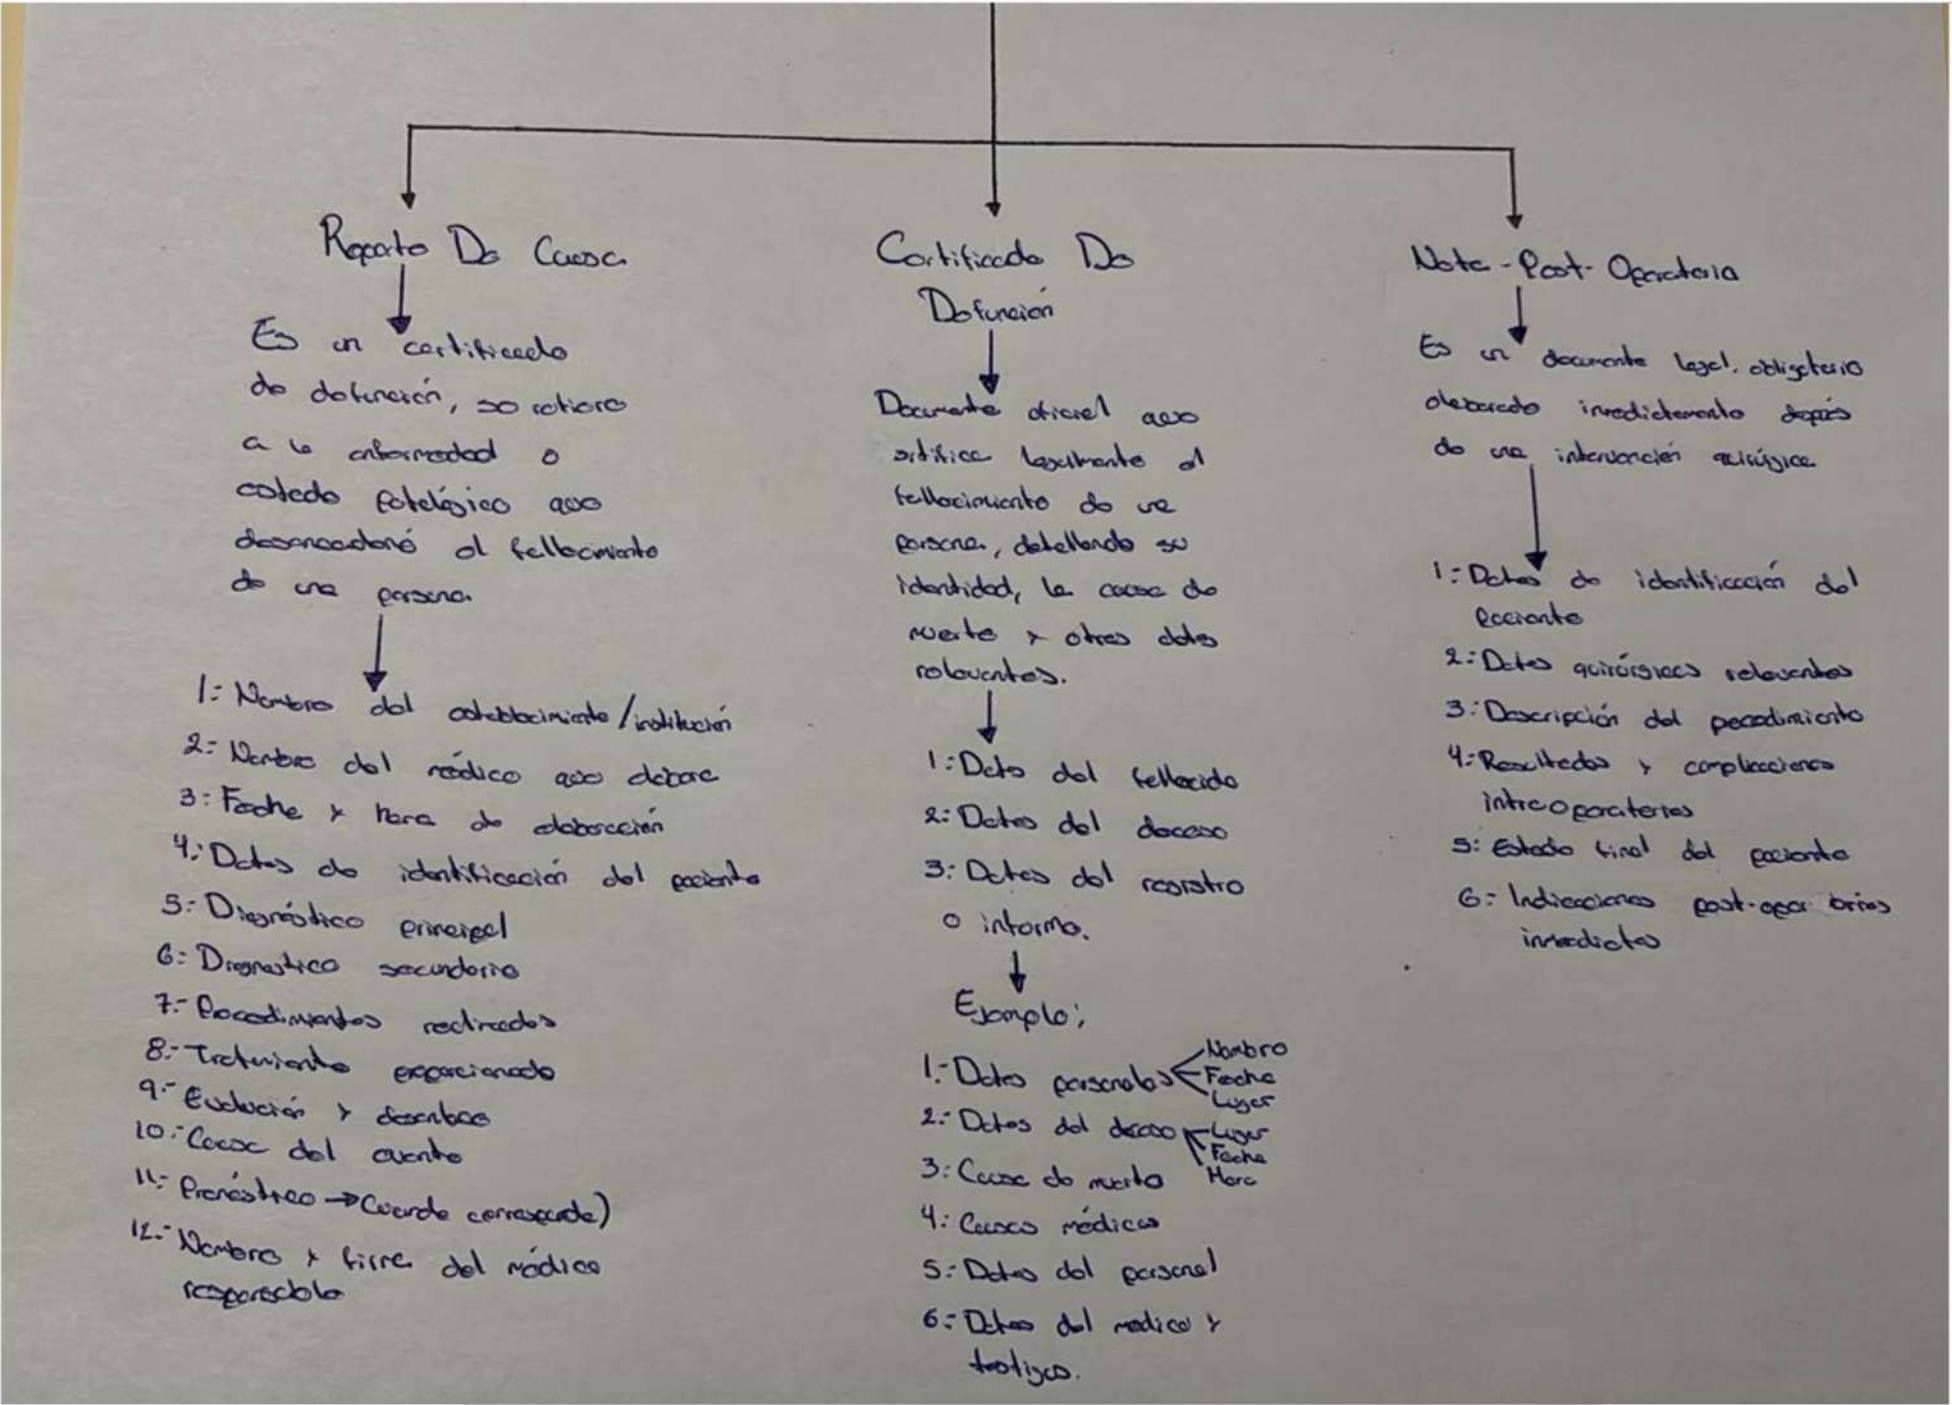 Reporte De Causa
Es un certificado
de defunción, se refiere
a la enfermedad o
estado patológico que
desencadenó el fallecimiento
de una persona
1:- Nombre del establecimiento/institución
2:- Nombre del médico que elabora
3:- Fecha y hora de elaboración
4:- Datos de identificación del paciente
5:- Diagnóstico principal
6:- Diagnostico secundario
7:- Procedimientos realizados
8:- Tratamiento proporcionado
9:- Evolución y
10:- Causa del evento
11:- Pronóstico → Cuando corresponda)
12:- Nombre y firma del médico
responsable
Certificado De
Defunción
Documento oficial que
legalmente el
fallecimiento de una
persona, detallando su
identidad, la causa de
muerte y otros datos
relevantes.
1:- Dato del fallecido
2:- Datos del deceso
3:- Datos del registro
o informe.
Ejemplo;
1:- Datos personales Nombre
Fecha
Lugar
2:- Datos del deceso Lugar
Fecha
Hora
3:- Causa de muerte
4:- Causas médicas
5:- Datos del personal
6:- Datos del medico y
testigos.
Nota-Post-Operatoria
Es un documento legal, obligatorio
elaborado inmediatamente después
de una intervención quirúrgica
1:- Datos de identificación del
paciente
2:- Datos quirúrgicos relevantes
3:- Descripción del procedimiento
4:- Resultados y complicaciones
intraoperatorias
5:- Estado final del paciente
6:- Indicaciones post-oper torias
inmediatas